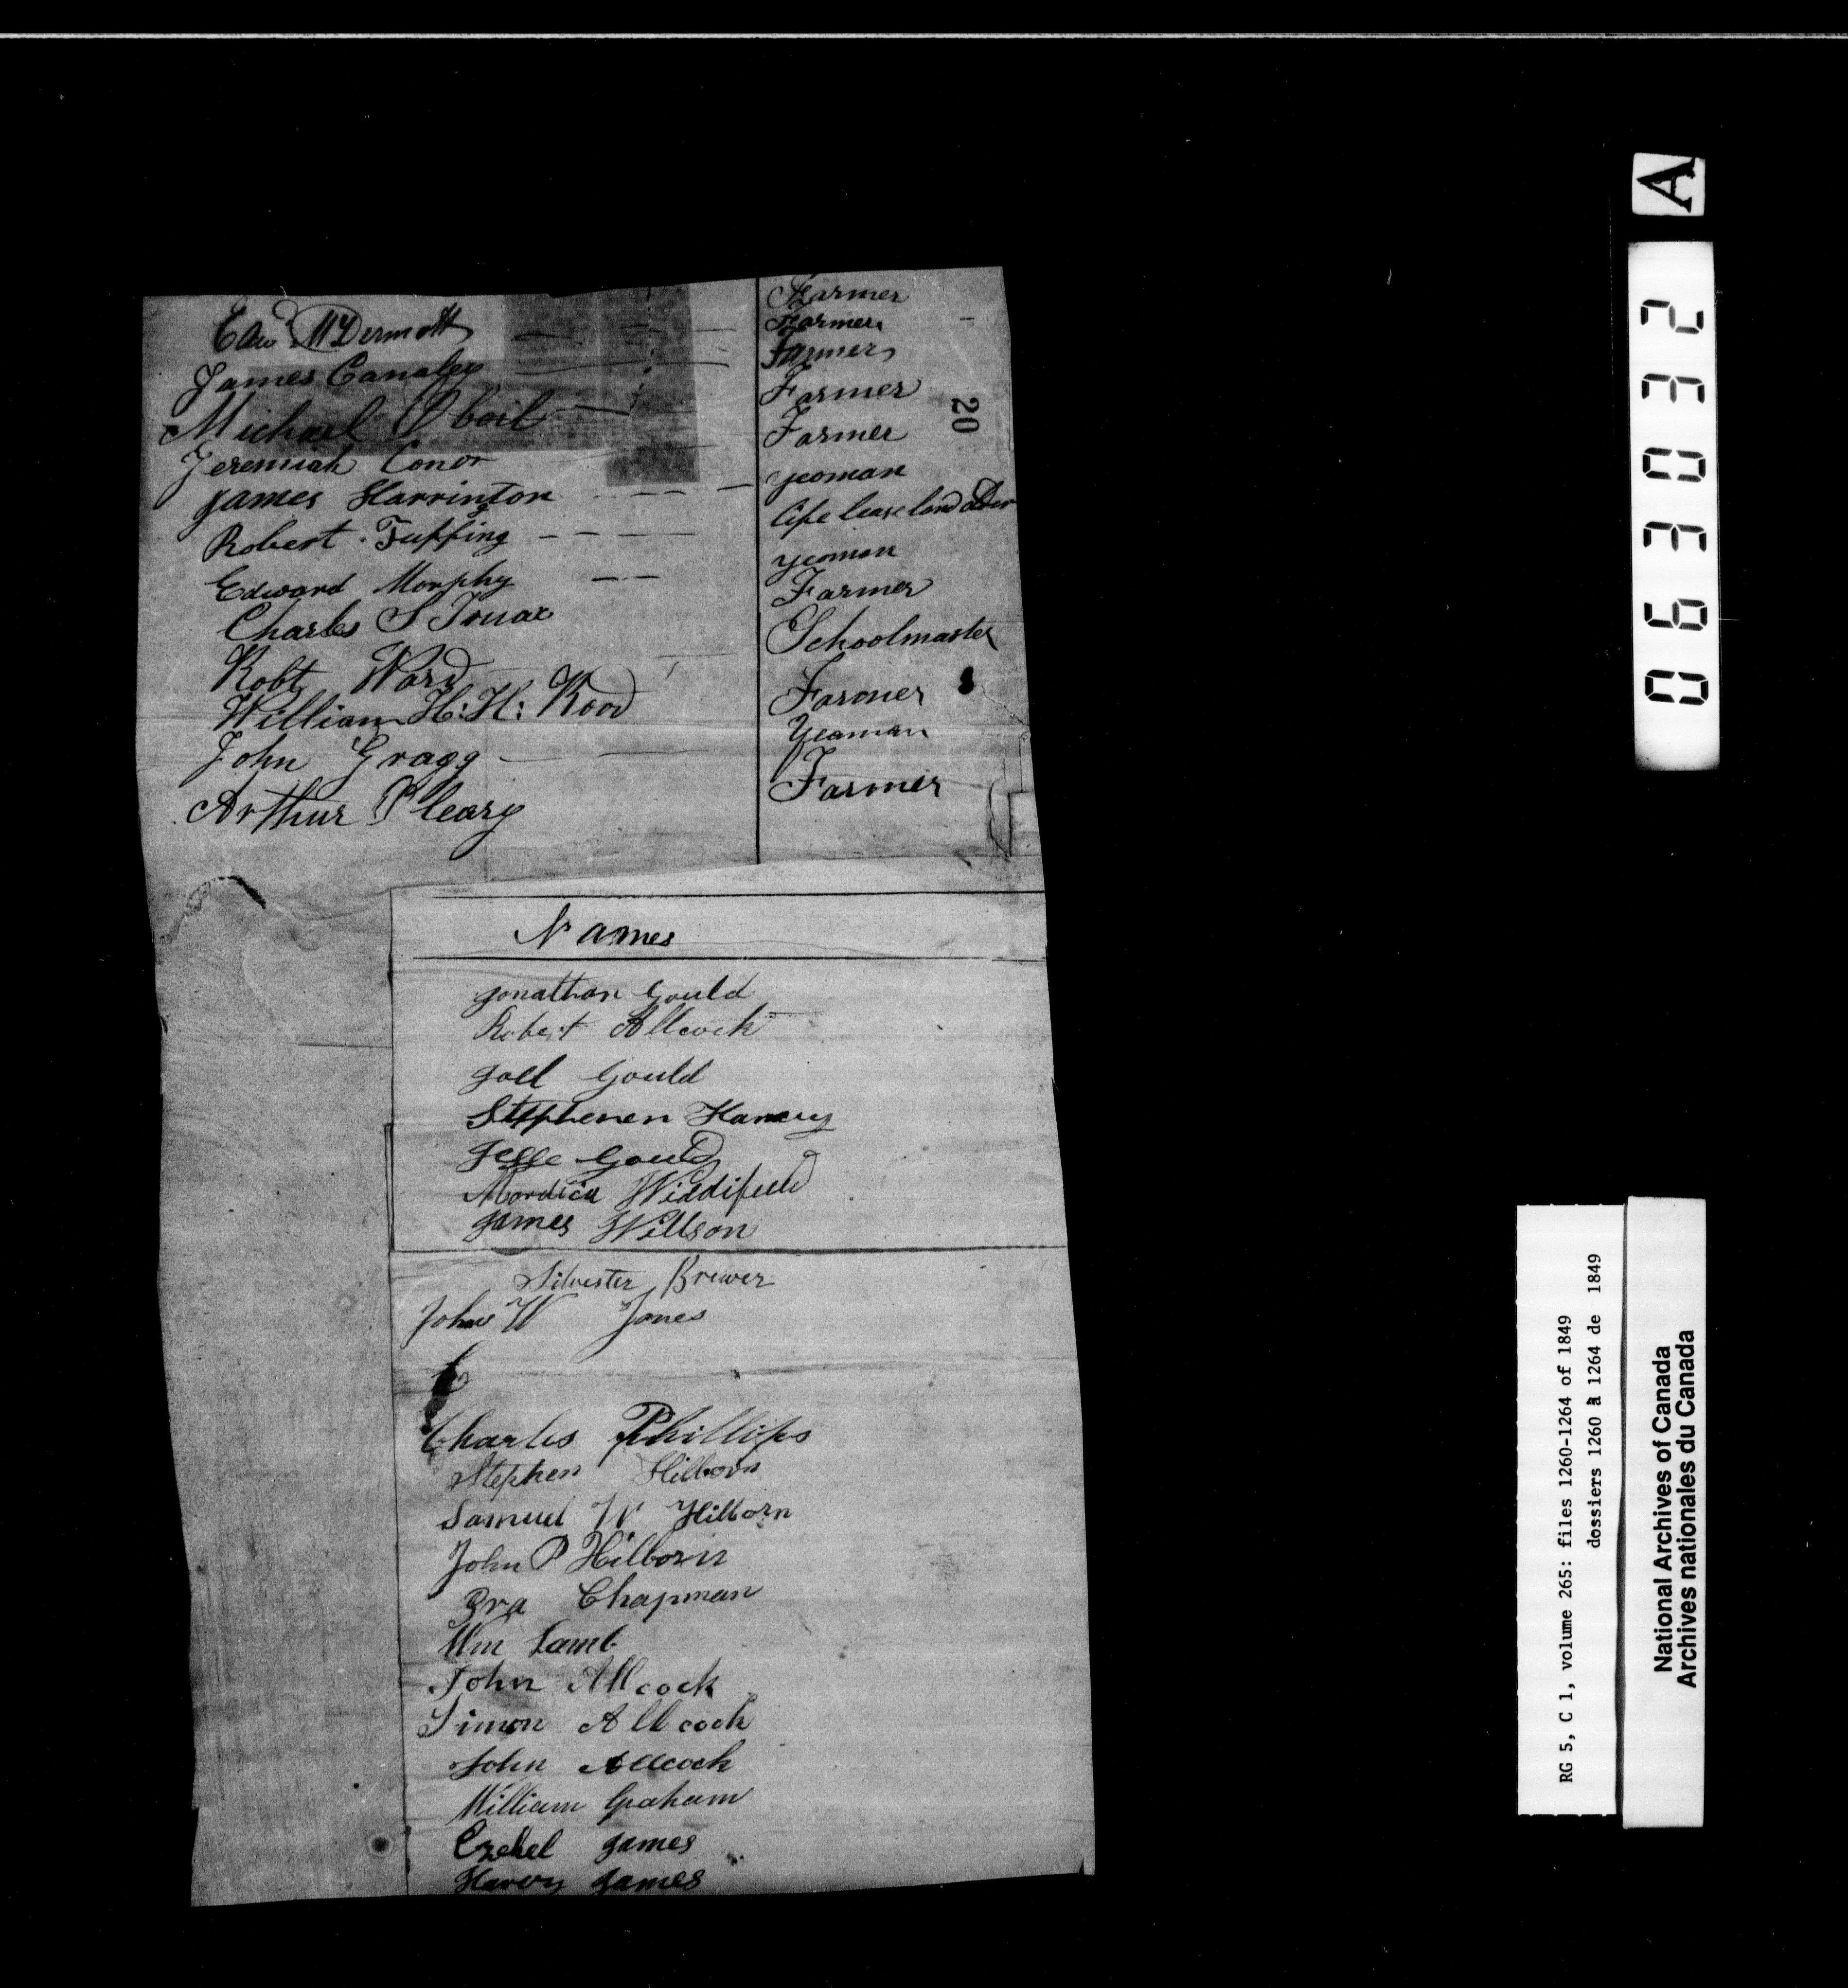 Edwd McDermott Farmer
Farmer
James Canaley Farmer
Michael Oboil Farmer
Jeremiah Conor Farmer
James Harrinton yeoman
Robert Tuffing life lease land
Edward Morphy yeoman
Charles S Truax Farmer
Robt Ward Schoolmaster
William H: H: Rood Farmer
John Gragg Yeaman
Arthur Cleary Farmer
20
Names
Jonathan Gould
Robert Allcock
Joel Gould
Stephenen Harvey
Jesse Gould
Mordica Widdifield
James Willson
Silvester Brewer
John W Jones
Charles Phillips
Stephen Hilborn
Samuel W Hilborn
John P Hilborn
Ira Chapman
Wm Lamb
John Allcock
Simon Allcock
John Allcock
William Graham
Ezekel James
Harvy James
A
063032
RG 5, C 1, volume 265: files 1260-1264 of 1849
dossiers 1260 à 1264 de 1849
National Archives of Canada
Archives nationales du Canada